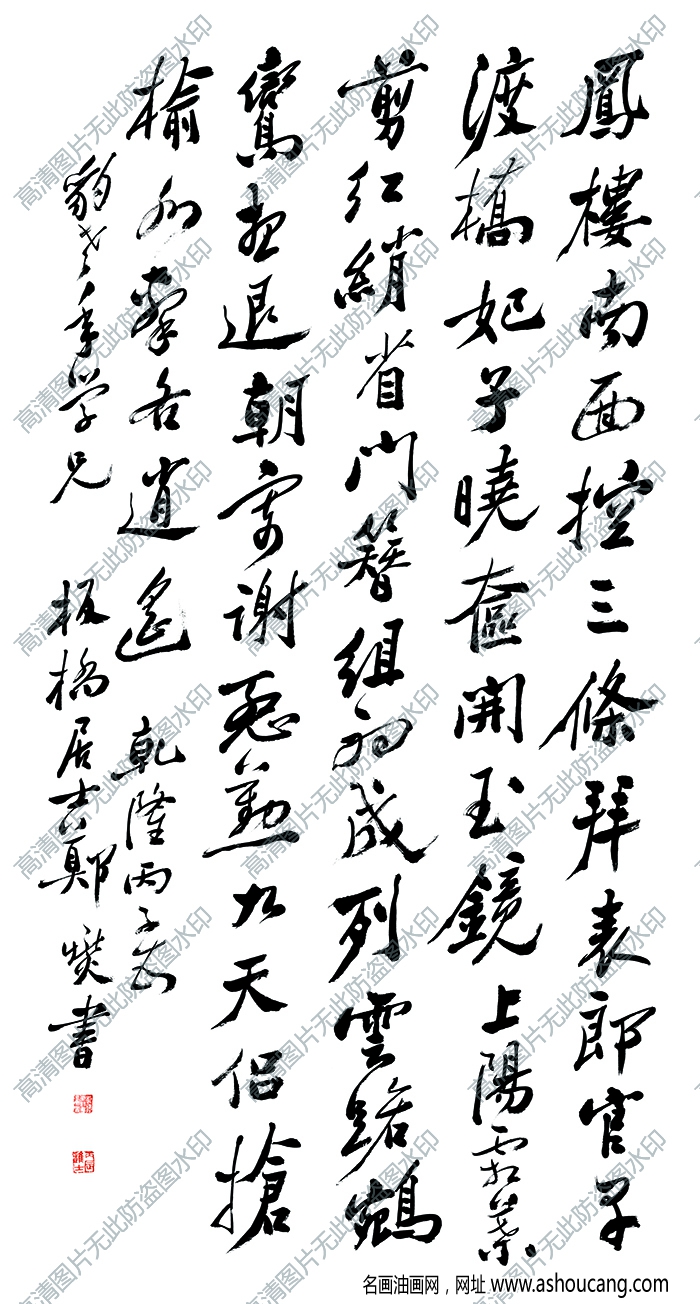 鳳樓南面控三條拜表郎官早
渡橋妃子曉奩開玉鏡上陽霜葉
剪紅綃省門簪組初成列雲路鵷
鸞想退朝寄謝殷勤九天侶搶
榆水擊各逍遙 乾隆丙子
年学兄 板橋居士鄭燮書
高清图片无此防盗图水印
名画油画网，网址 www.ashoucang.com